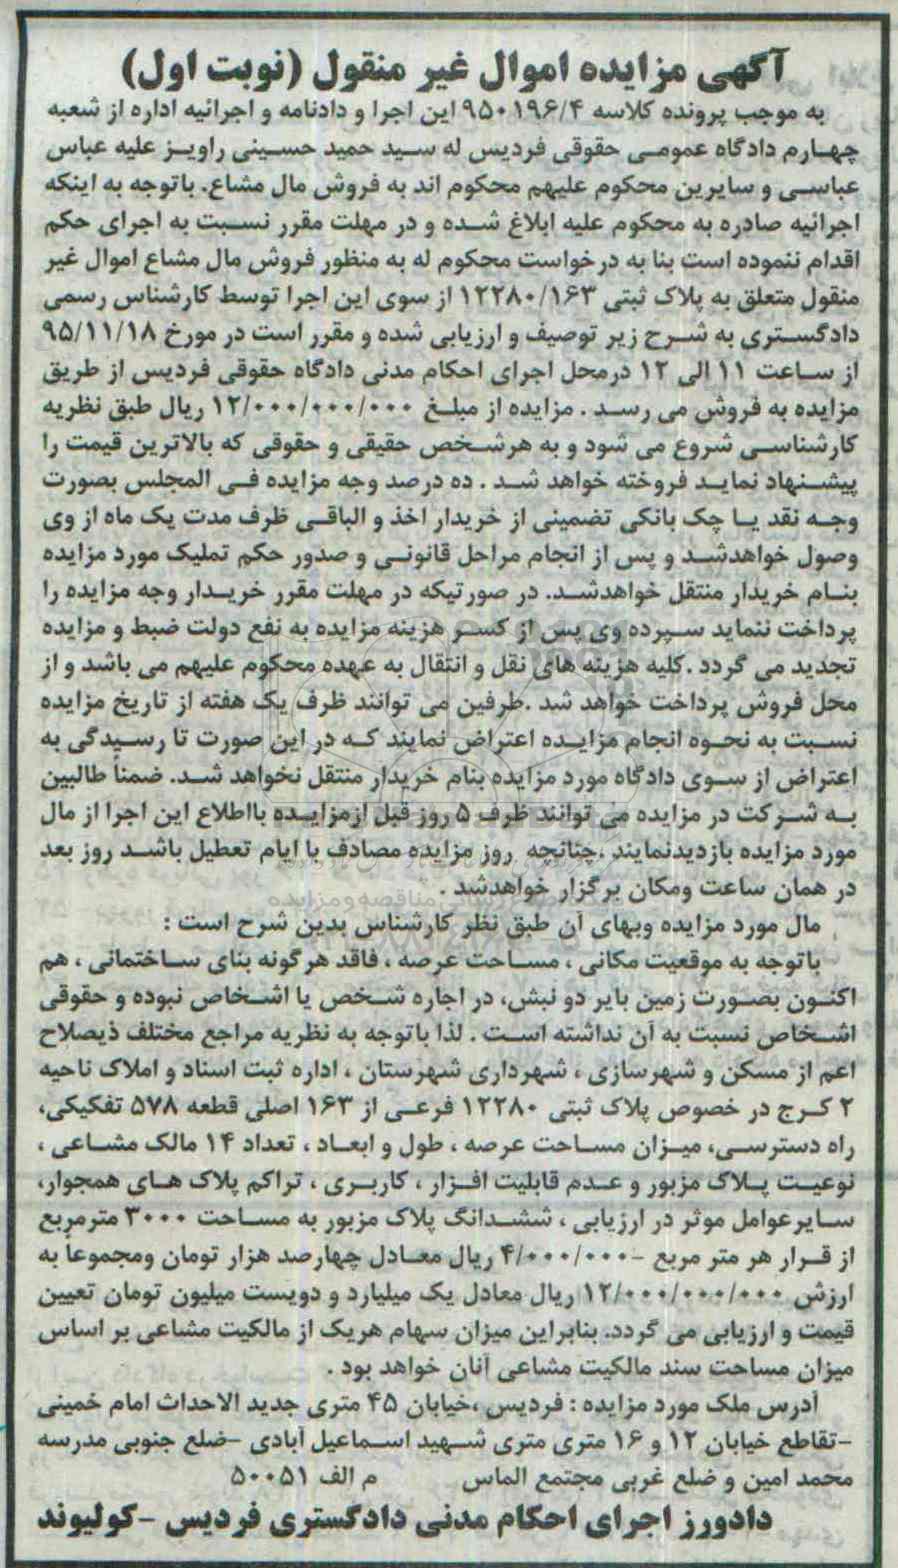 آگهی مزایده اموال غیر منقول (نوبت اول)
به موجب پرونده کلاسه ۹۵۰۱۹۶/۴ این اجرا و دادنامه و اجرائیه اداره از شعبه
چهارم دادگاه عمومی حقوقی فردیس له سید حمید حسینی راویز علیه عباس
عباسی و سایرین محکوم علیهم محکوم اند به فروش مال مشاع. باتوجه به اینکه
اجرائیه صادره به محکوم علیه ابلاغ شده و در مهلت مقرر نسبت به اجرای حکم
اقدام ننموده است بنا به درخواست محکوم له به منظور فروش مال مشاع اموال غیر
منقول متعلق به پلاک ثبتی ۱۲۲۸۰/۱۶۳ از سوی این اجرا توسط کارشناس رسمی
دادگستری به شرح زیر توصیف و ارزیابی شده و مقرر است در مورخ ۹۵/۱۱/۱۸
از ساعت ۱۱ الی ۱۲ درمحل اجرای احکام مدنی دادگاه حقوقی فردیس از طریق
مزایده به فروش می رسد . مزایده از مبلغ ۱۲/۰۰۰/۰۰۰/۰۰۰ ریال طبق نظریه
کارشناسی شروع می شود و به هرشخص حقیقی و حقوقی که بالاترین قیمت را
پیشنهاد نماید فروخته خواهد شد . ده درصد وجه مزایده فی المجلس بصورت
وجه نقد یا چک بانکی تضمینی از خریدار اخذ و الباقی ظرف مدت یک ماه از وی
وصول خواهدشد و پس از انجام مراحل قانونی و صدور حکم تملیک مورد مزایده
بنام خریدار منتقل خواهدشد. در صورتیکه در مهلت مقرر خریدار وجه مزایده را
پرداخت ننماید سپرده وی پس از کسر هزینه مزایده به نفع دولت ضبط و مزایده
تجدید می گردد .کلیه هزینه های نقل و انتقال به عهده محکوم علیهم می باشد و از
محل فروش پرداخت خواهد شد .طرفین می توانند ظرف یک هفته از تاریخ مزایده
نسبت به نحوه انجام مزایده اعتراض نمایند که در این صورت تا رسیدگی به
اعتراض از سوی دادگاه مورد مزایده بنام خریدار منتقل نخواهد شد. ضمناً طالبین
به شرکت در مزایده می توانند ظرف ۵ روز قبل ازمزایده بااطلاع این اجرا از مال
مورد مزایده بازدیدنمایند .چنانچه روز مزایده مصادف با ایام تعطیل باشد روز بعد
در همان ساعت ومکان برگزار خواهدشد .
مال مورد مزایده وبهای آن طبق نظر کارشناس بدین شرح است :
باتوجه به موقعیت مکانی ، مساحت عرصه ، فاقد هرگونه بنای ساختمانی ، هم
اکنون بصورت زمین بایر دو نبش، در اجاره شخص یا اشخاص نبوده و حقوقی
اشخاص نسبت به آن نداشته است . لذا باتوجه به نظریه مراجع مختلف ذیصلاح
اعم از مسکن و شهرسازی ، شهرداری شهرستان ، اداره ثبت اسناد و املاک ناحیه
۲ کرج در خصوص پلاک ثبتی ۱۲۲۸۰ فرعی از ۱۶۳ اصلی قطعه ۵۷۸ تفکیکی،
راه دسترسی، میزان مساحت عرصه ، طول و ابعاد ، تعداد ۱۴ مالک مشاعی ،
نوعیت پلاک مزبور و عدم قابلیت افراز ، کاربری ، تراکم پلاک های همجوار،
سایرعوامل موثر در ارزیابی ، ششدانگ پلاک مزبور به مساحت ۳۰۰۰ مترمربع
از قرار هر متر مربع -۴/۰۰۰/۰۰۰ ریال معادل چهارصد هزار تومان ومجموعاً به
ارزش ۱۲/۰۰۰/۰۰۰/۰۰۰ ریال معادل یک میلیارد و دویست میلیون تومان تعیین
قیمت و ارزیابی می گردد. بنابراین میزان سهام هریک از مالکیت مشاعی بر اساس
میزان مساحت سند مالکیت مشاعی آنان خواهد بود .
آدرس ملک مورد مزایده : فردیس ،خیابان ۴۵ متری جدید الاحداث امام خمینی
-تقاطع خیابان ۱۲ و ۱۶ متری متری شهید اسماعیل آبادی -ضلع جنوبی مدرسه
محمد امین و ضلع غربی مجتمع الماس م الف ۵۰۰۵۱
دادورز اجرای احکام مدنی دادگستری فردیس -کولیوند